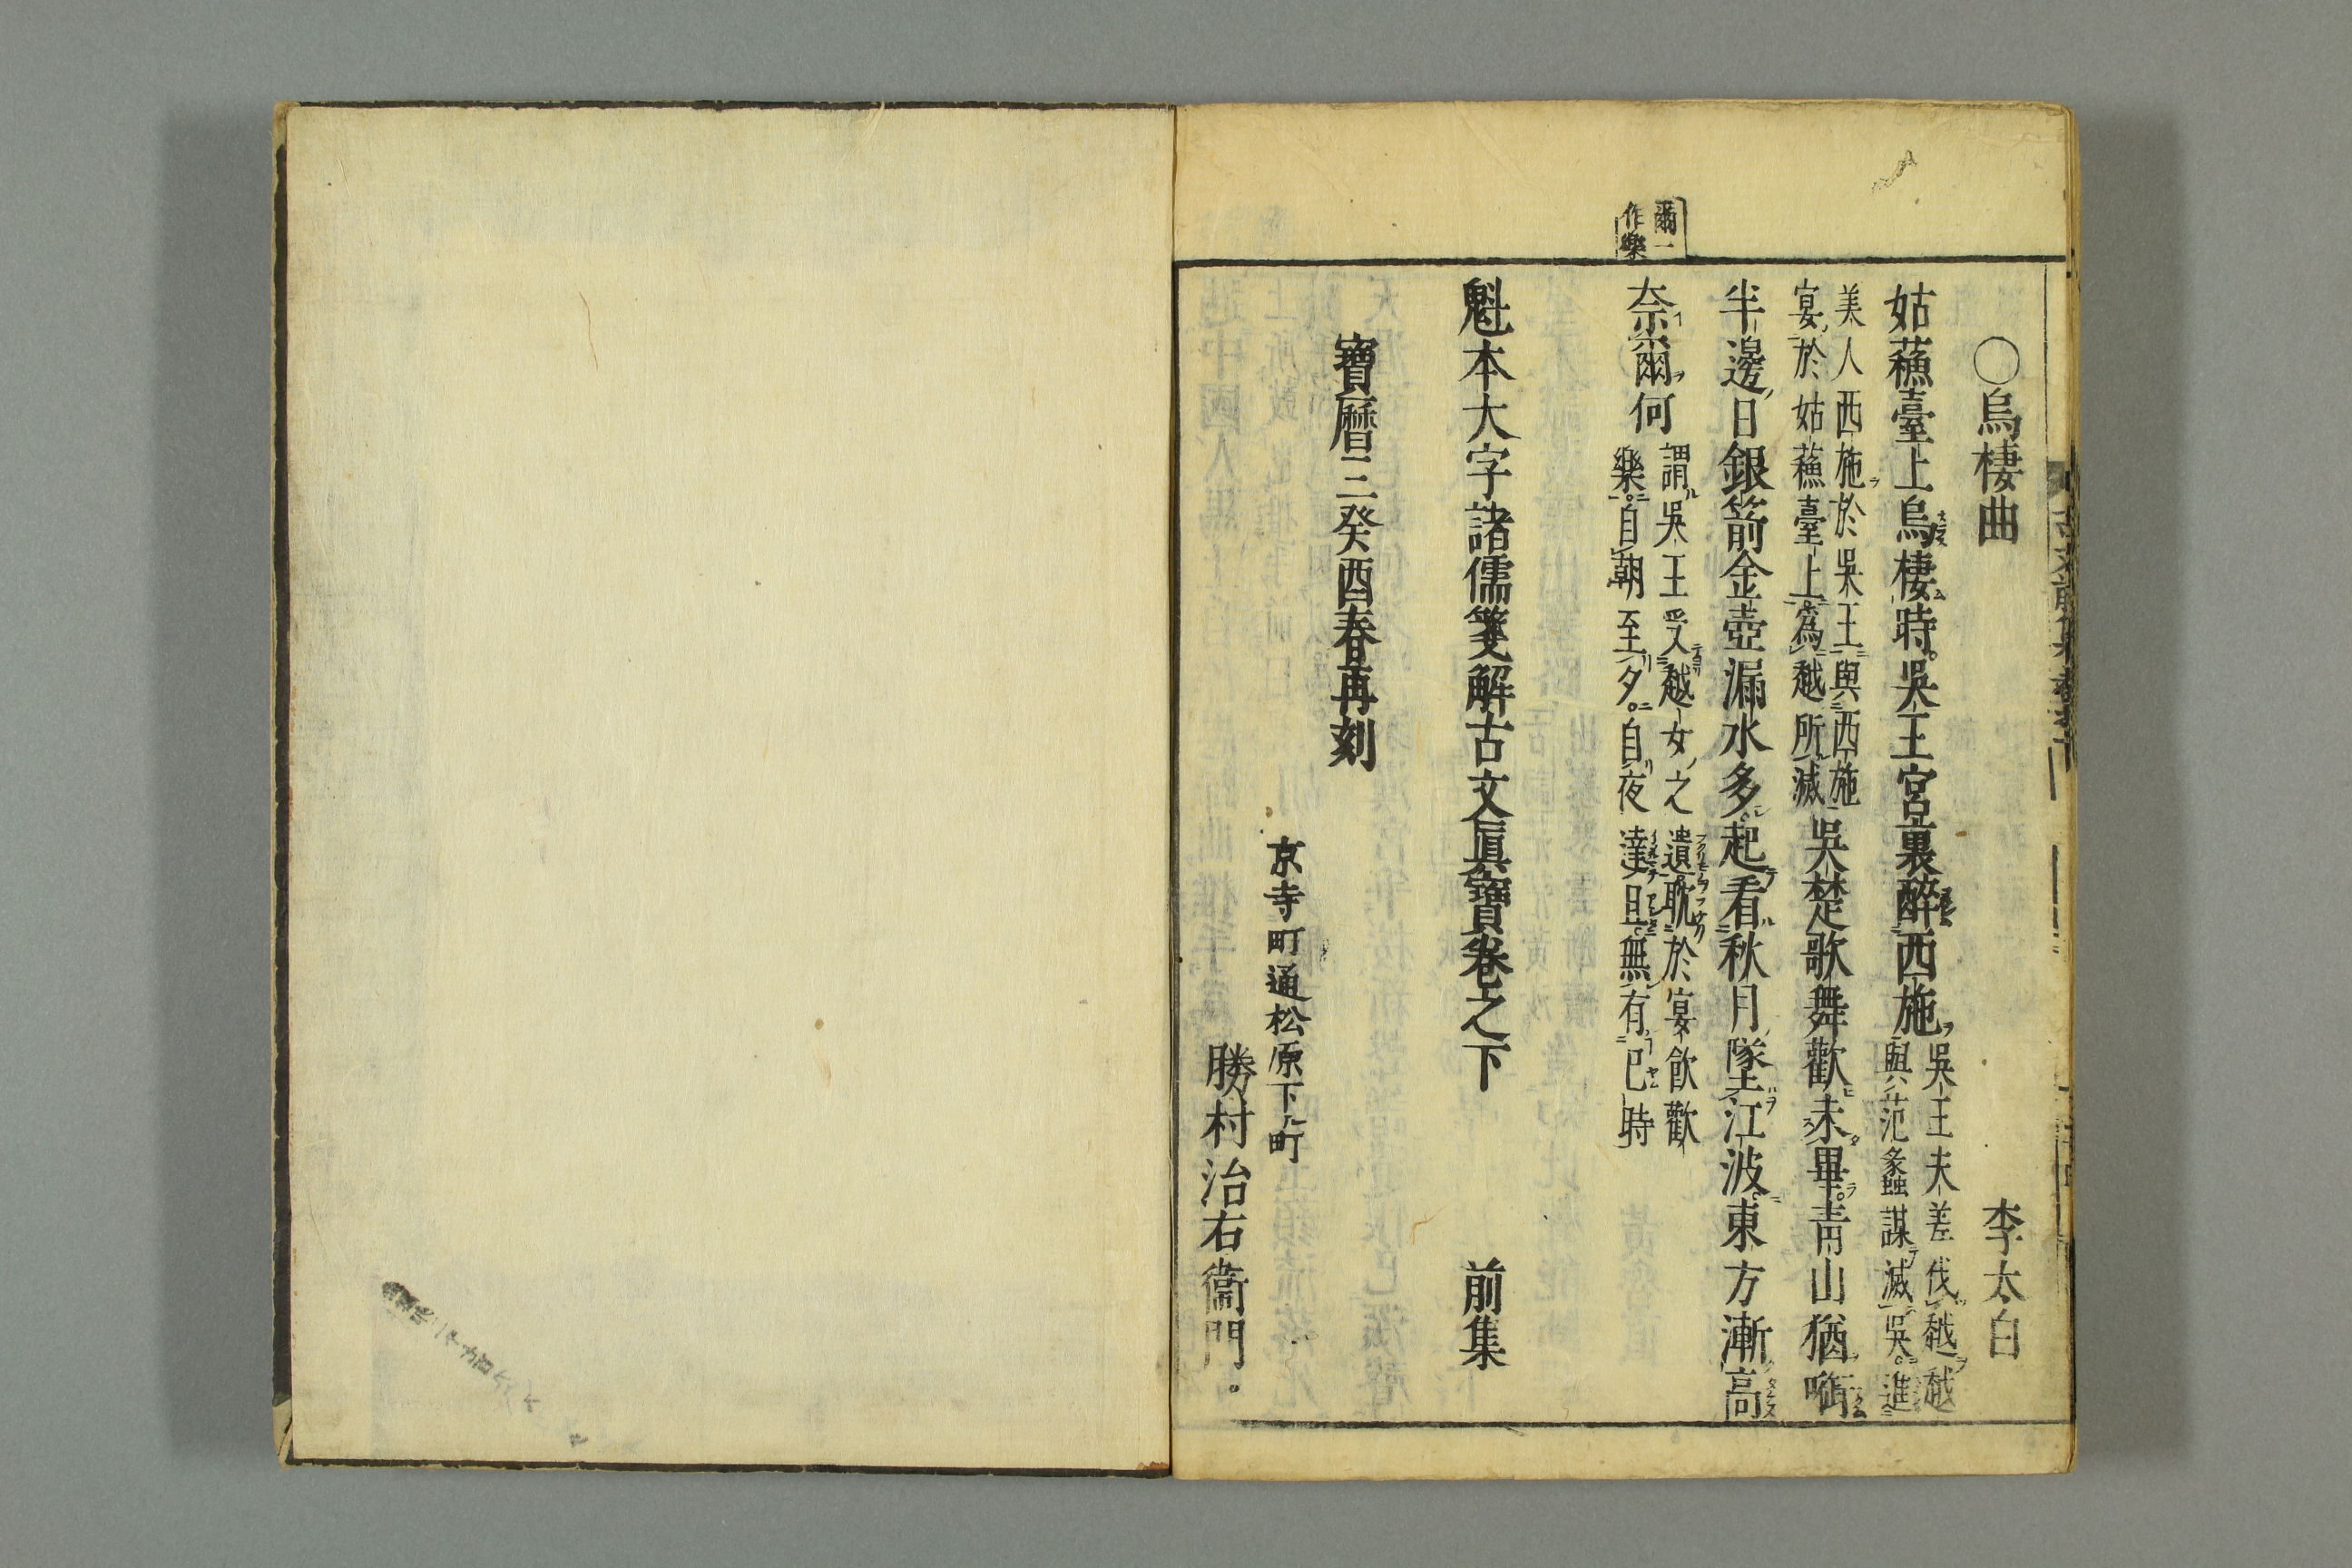 ○烏棲曲 李太白
姑蘓臺上烏棲時吳王宮裏醉西施吳王夫差伐越越
與范蠡謀滅吳進
美人西施於吳王與西施
宴於姑蘓臺上爲越所滅吳楚歌舞歡未畢青山猶啣
半邊日銀箭金壺漏水多起看秋月墜江波東方漸高
奈爾何謂吳王受越女之遺耽於宴飲歡
樂自朝至夕自夜達旦無有已時
爾一
作樂
魁本大字諸儒箋解古文眞寶卷之下 前集
寶曆三癸酉春再刻
京寺町通松原下ル町
勝村治右衞門